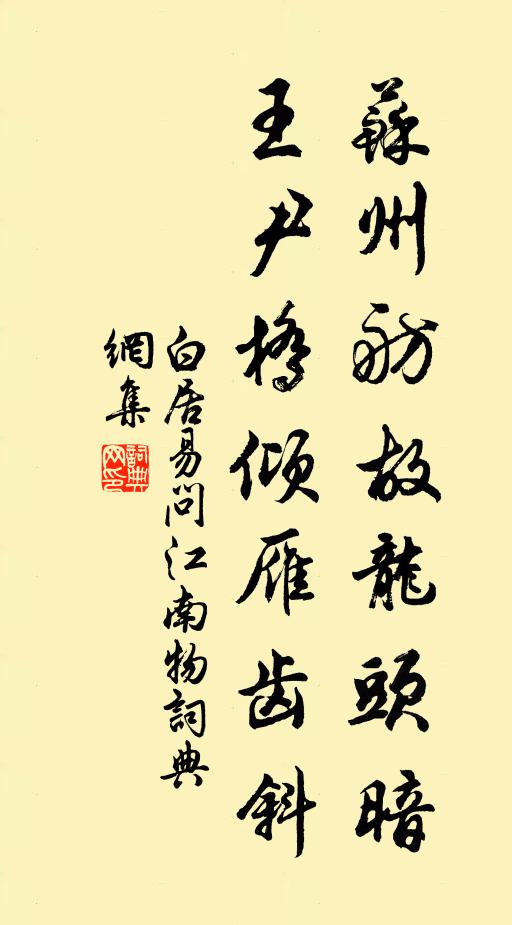 蘇州舫故龍頭暗
王尹橋傾雁齿斜
白居易問江南物詞典
網集
詞典网印